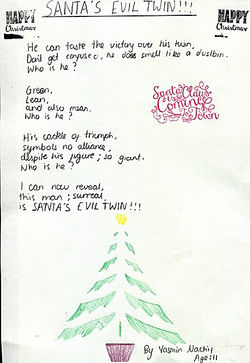 SANTA'S EVIL TWIN!!!
HAPPY
Christmas
HAPPY
Christmas
He can taste the victory over his twin,
Don't get confused, he does smell like a dustbin.
Who is he?
Green,
Lean,
and also mean.
Who is he?
Santa Claus
is
Coming
to
Town
His cackle of triumph,
symbols no alliance,
despite his figure; so giant.
Who is he?
I can now reveal,
this man; surreal,
is SANTA'S EVIL TWIN!!!
By Yasmin
Age: 11